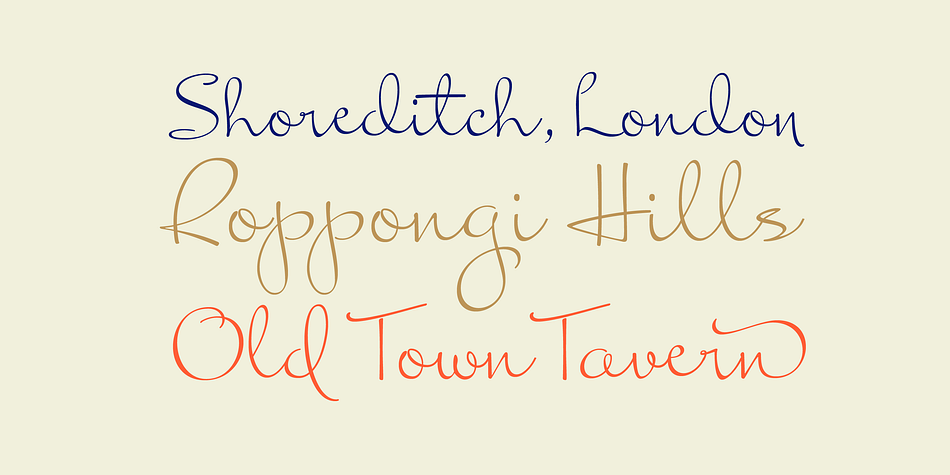 Shoreditch, London
Roppongi Hills
Old Town Tavern